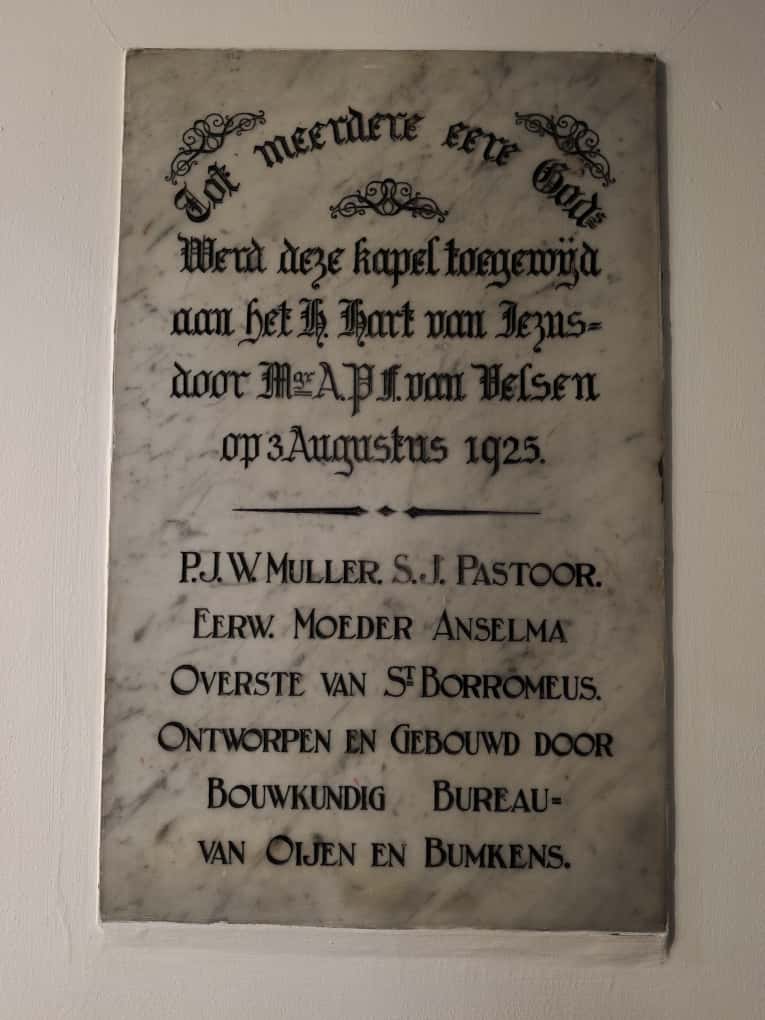 Tot meerdere eere Gods
Werd deze kapel toegewijd
aan het H. Hart van Jezus=
door Mgr A.P.F. van Velsen
op 3 Augustus 1925.
P.J.W. MULLER. S.J. PASTOOR.
EERW. MOEDER ANSELMA
OVERSTE VAN ST BORROMEUS.
ONTWORPEN EN GEBOUWD DOOR
BOUWKUNDIG BUREAU=
VAN OIJEN EN BUMKENS.